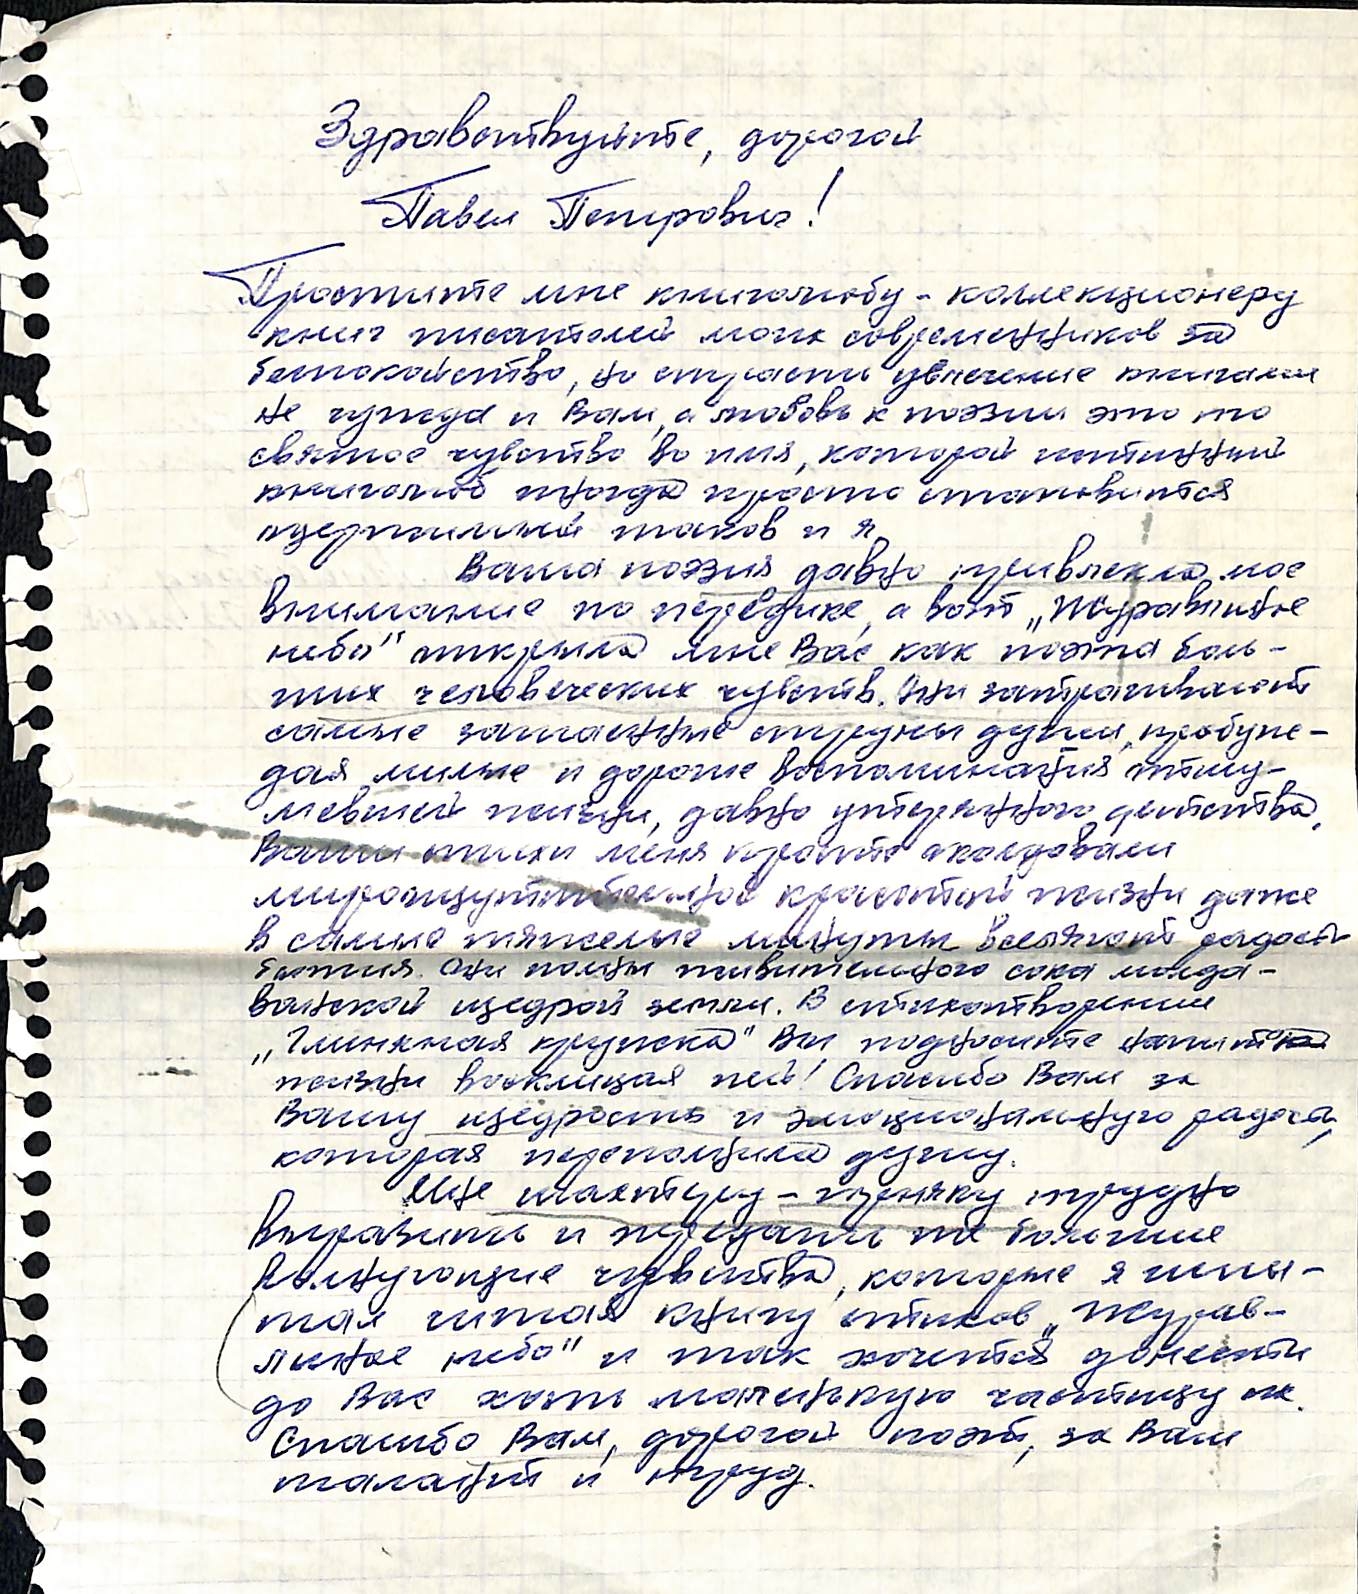 Здравствуйте, дорогой
Павел Петрович!
Простите мне книголюбу - коллекционеру
книг писателей моих современников за
беспокойство, но страсть увлечение книгами
не чужда и Вам, а любовь к поэзии это то
святое чувство во имя, которой истинный
книголюб иногда просто становится
одержимый таков и я.
Ваша поэзия давно привлекла мое
внимание по периодике, а вот „Журавлиное
небо" открыла мне Вас как поэта боль-
ших человеческих чувств. Они затрагивают
самые затаенные струны души, пробуж-
дая милые и дорогие воспоминания отшу-
мевшей жизни, давно утерянного детства.
Ваши стихи меня просто околдовали
красотой жизни даже
в самые тяжелые минуты вселяют радость
бытия. Они полны живительного сока молда-
ванской щедрой земли. В стихотворении
„Глиняная кружка" Вы подносите напиток
жизни восклицая пей! Спасибо Вам за
Вашу щедрость и эмоциональную радость,
которая переполнила душу.
Мне шахтеру - горняку трудно
выразить и передать те большие
волнующие чувства, которые я испы-
тал читая книгу стихов „Журав-
линое небо" и так хочется донести
до Вас хоть маленькую частицу их.
Спасибо Вам, дорогой поэт, за Ваш
талант и труд.